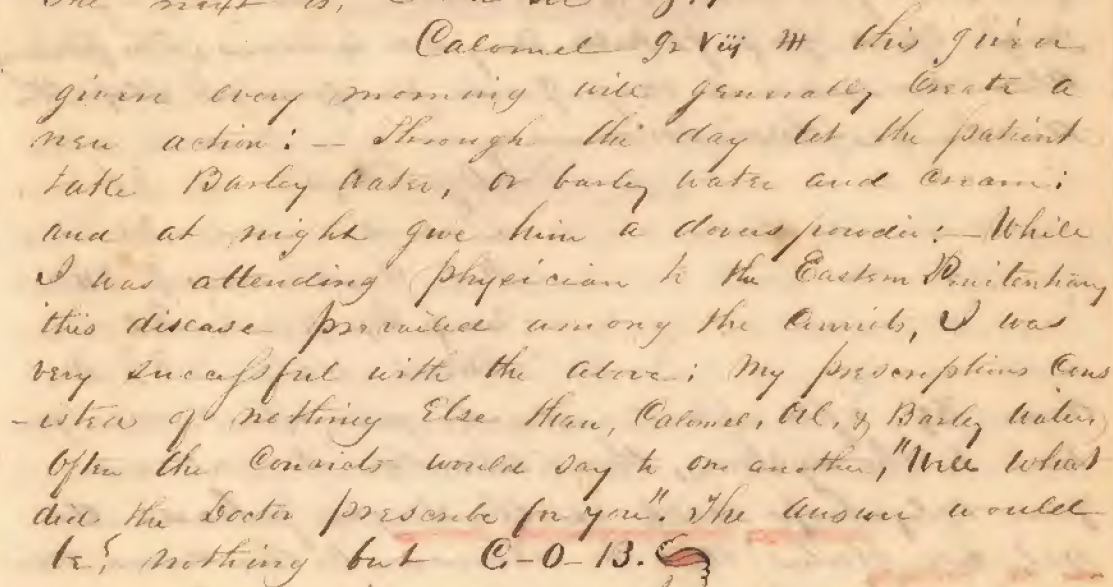 The next is,
Calomel gr viij ℳ this given
given every morning will generally Create a
new action: — Through the day let the patient
take Barley water, or barley water and cream:
and at night give him a dovers powder: — While
I was attending physician to the Eastern Penitentiary
this disease prevailed among the Convicts, I was
very successful with the above; my prescriptions Cons
-isted of nothing Else than, Calomel, Oil, & Barley water,
Often the Convicts would say to one another, "Well what
did the Doctor prescribe for you". The answer would
be, nothing but C-O-B.